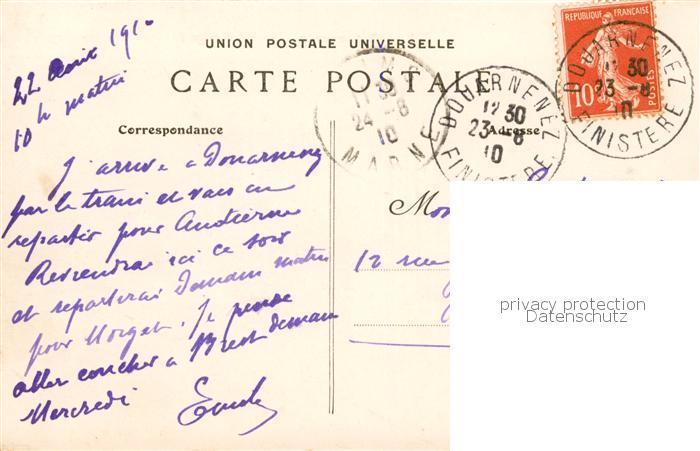 22 Août 1910
10 h matin
UNION POSTALE UNIVERSELLE
CARTE POSTALE
Correspondance
Adresse
J'arrive a Douarnenez
par le train et vais en
repartir pour Audierne
Reviendrai ici ce soir
et repartirai Demain matin
pour Morgat. Je pense
aller coucher a Brest demain
Mercredi
REPUBLIQUE FRANÇAISE
10
POSTES
DOUARNENEZ
12 30
23 -8
10
FINISTERE
DOUARNENEZ
12 30
23 -8
10
FINISTERE
24 -8
10
MARNE
12 rue
privacy protection
Datenschutz